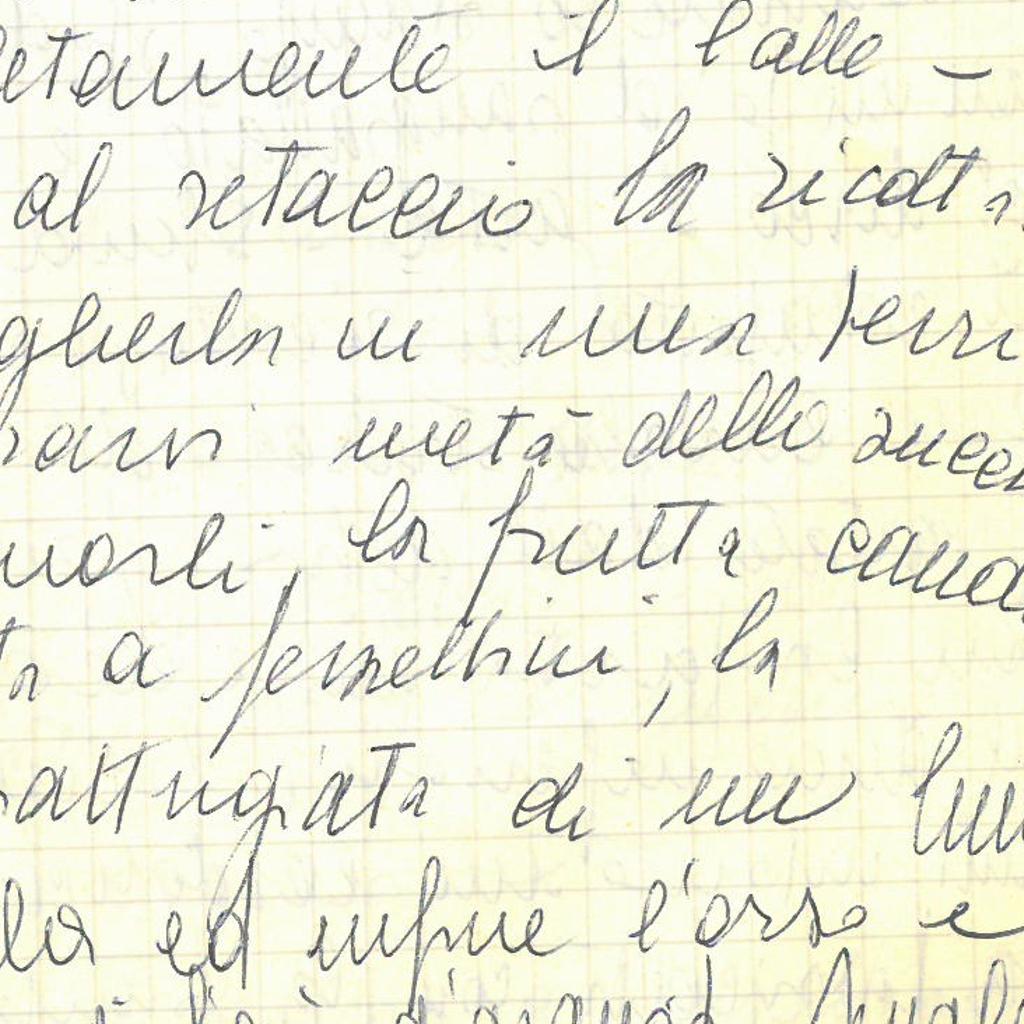 etamente il latte -
al setaccio la ricotta
glierla in una terri
metà dello zucche
tuorli, la frutta cand
ta a pezzettini, la
rattugiata di un lim
la ed infine l'orzo e
d'arancio